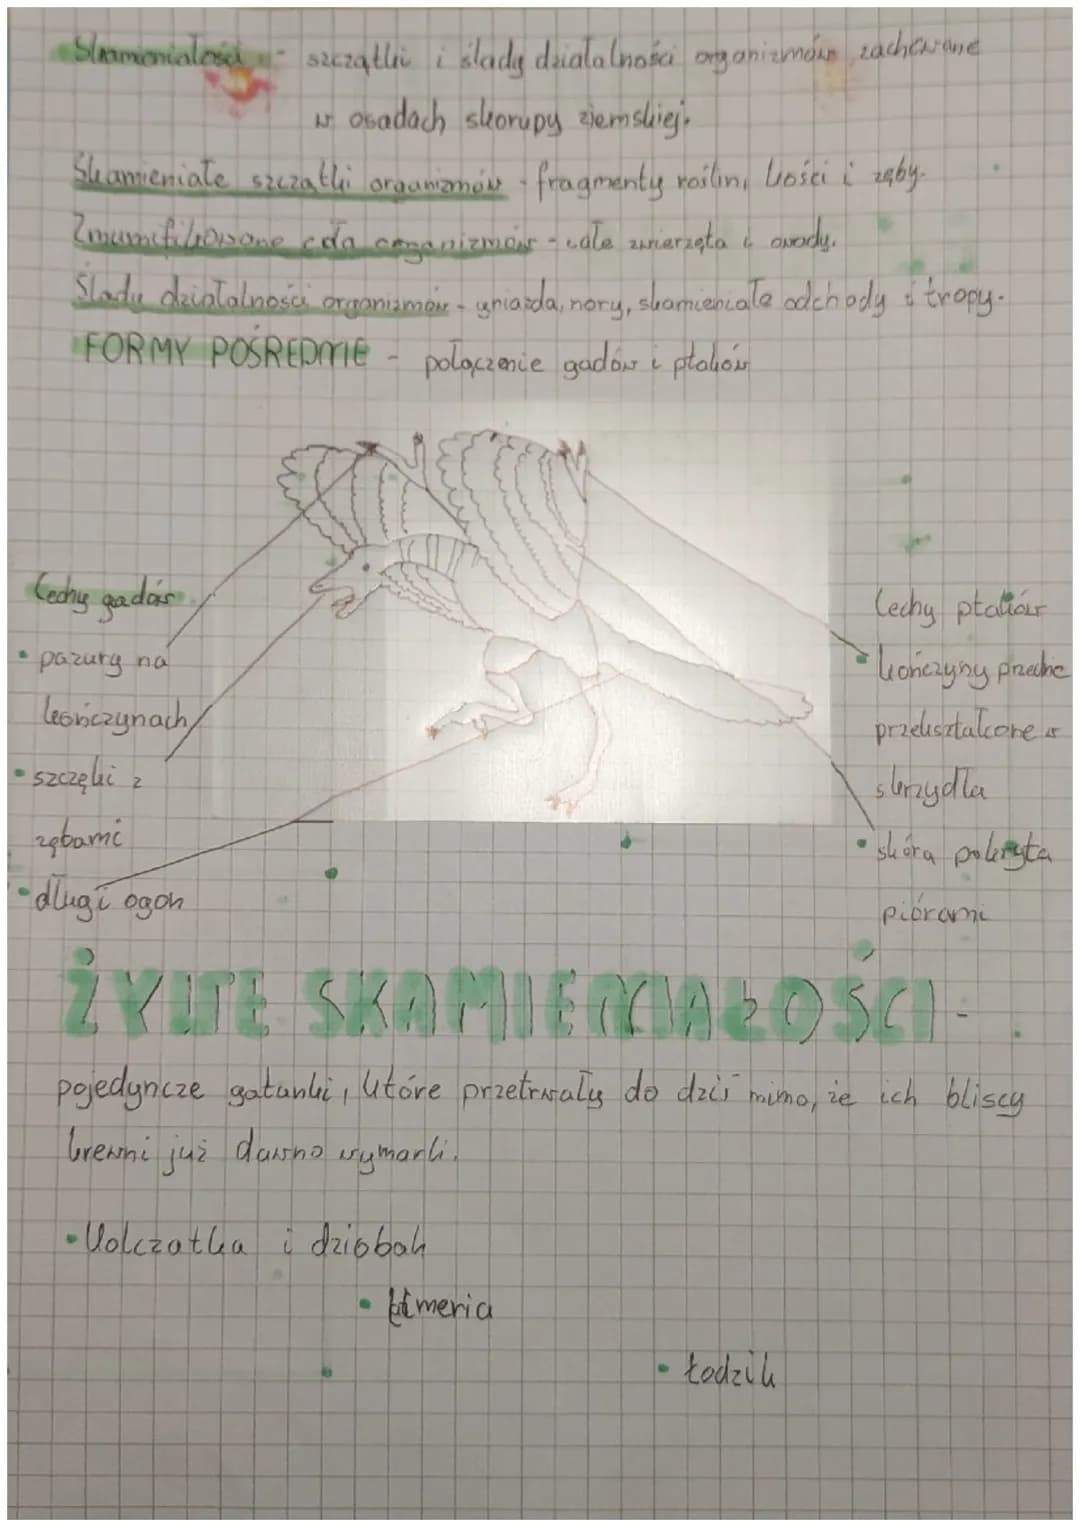 Skamieniałości - szczątki i ślady działalności organizmów zachowane
w osadach skorupy ziemskiej.
Skamieniałe szczątki organizmów - fragmenty roślin, kości i zęby.
Zmumifikowane ciała organizmów - całe zwierzęta i owady.
Ślady działalności organizmów - gniazda, nory, skamieniałe odchody i tropy.
FORMY POŚREDNIE - połączenie gadów i ptaków
Cechy gadów
• pazury na
kończynach
• szczęki z
zębami
• długi ogon
Cechy ptaków
• kończyny przednie
przekształcone w
skrzydła
• skóra pokryta
piórami
ŻYWE SKAMIENIAŁOŚCI -
pojedyncze gatunki, które przetrwały do dziś mimo, że ich bliscy
krewni już dawno wymarli.
• Kolczatka i dziobak
• Latimeria
• Łodzik